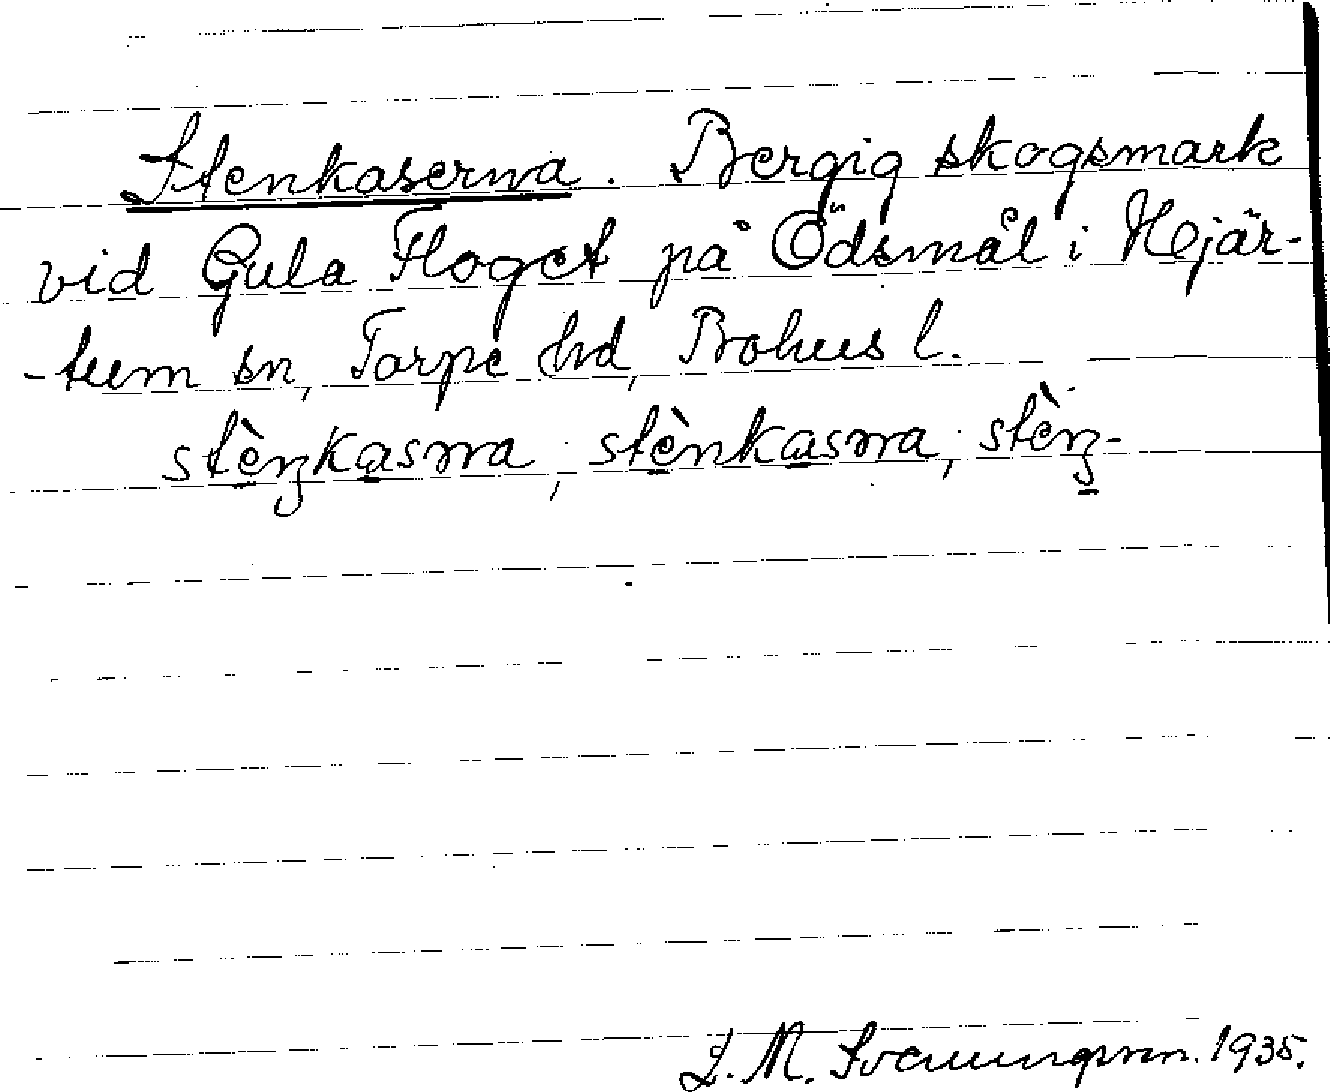 Stenkaserna. Bergig skogsmark
vid Gula Floget på Ödsmål i Hjär-
-tum sn, Torpe hd, Bohus l.
stènkasnra; stènkasnra; stèn-
L. M. Svenungsson. 1935.